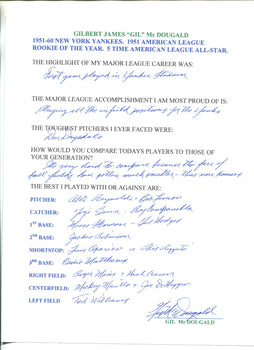 GILBERT JAMES "GIL" Mc DOUGALD
1951-60 NEW YORK YANKEES. 1951 AMERICAN LEAGUE
ROOKIE OF THE YEAR. 5 TIME AMERICAN LEAGUE ALL-STAR.
THE HIGHLIGHT OF MY MAJOR LEAGUE CAREER WAS:
First game played in Yankee Stadium
THE MAJOR LEAGUE ACCOMPLISHMENT I AM MOST PROUD OF IS:
Playing all the infield positions for the Yanks
THE TOUGHEST PITCHERS I EVER FACED WERE:
Don Drysdale
HOW WOULD YOU COMPARE TODAY'S PLAYERS TO THOSE OF
YOUR GENERATION?
It's very hard to compare because the size of
ball fields have gotten much smaller - thus more
THE BEST I PLAYED WITH OR AGAINST ARE:
PITCHER: Allie Reynolds + Bob Lemon
CATCHER: Yogi Berra - Roy Campanella
1st BASE: Gil Hodges
2nd BASE: Jackie Robinson
SHORTSTOP: Luis Aparicio + Phil Rizzuto
3rd BASE: Eddie Matthews
RIGHT FIELD: Roger Maris + Hank Aaron
CENTERFIELD: Mickey Mantle + Joe DiMaggio
LEFT FIELD Ted Williams
Gil McDougald
GIL MCDOUGALD